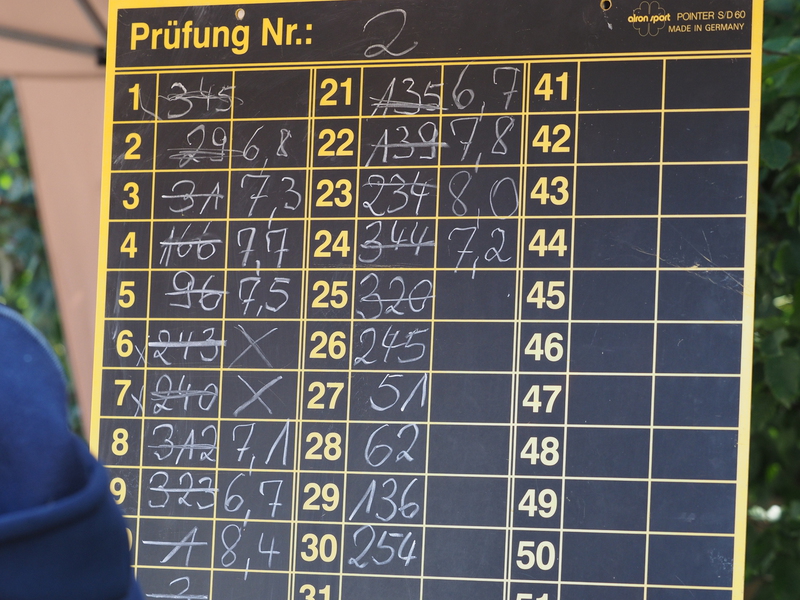 Prüfung Nr.: 2
alron sport POINTER S/D 60
MADE IN GERMANY
1 345 21 135 6,7 41
2 29 6,8 22 139 7,8 42
3 31 7,3 23 234 8,0 43
4 166 7,7 24 344 7,2 44
5 96 7,5 25 320 45
6 x 243 X 26 245 46
7 x 240 X 27 51 47
8 312 7,1 28 62 48
9 323 6,7 29 136 49
1 8,4 30 254 50